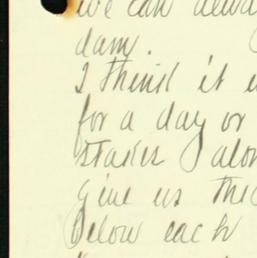 we can
dam.
I think it
for a day or
stakes
give us the
below each